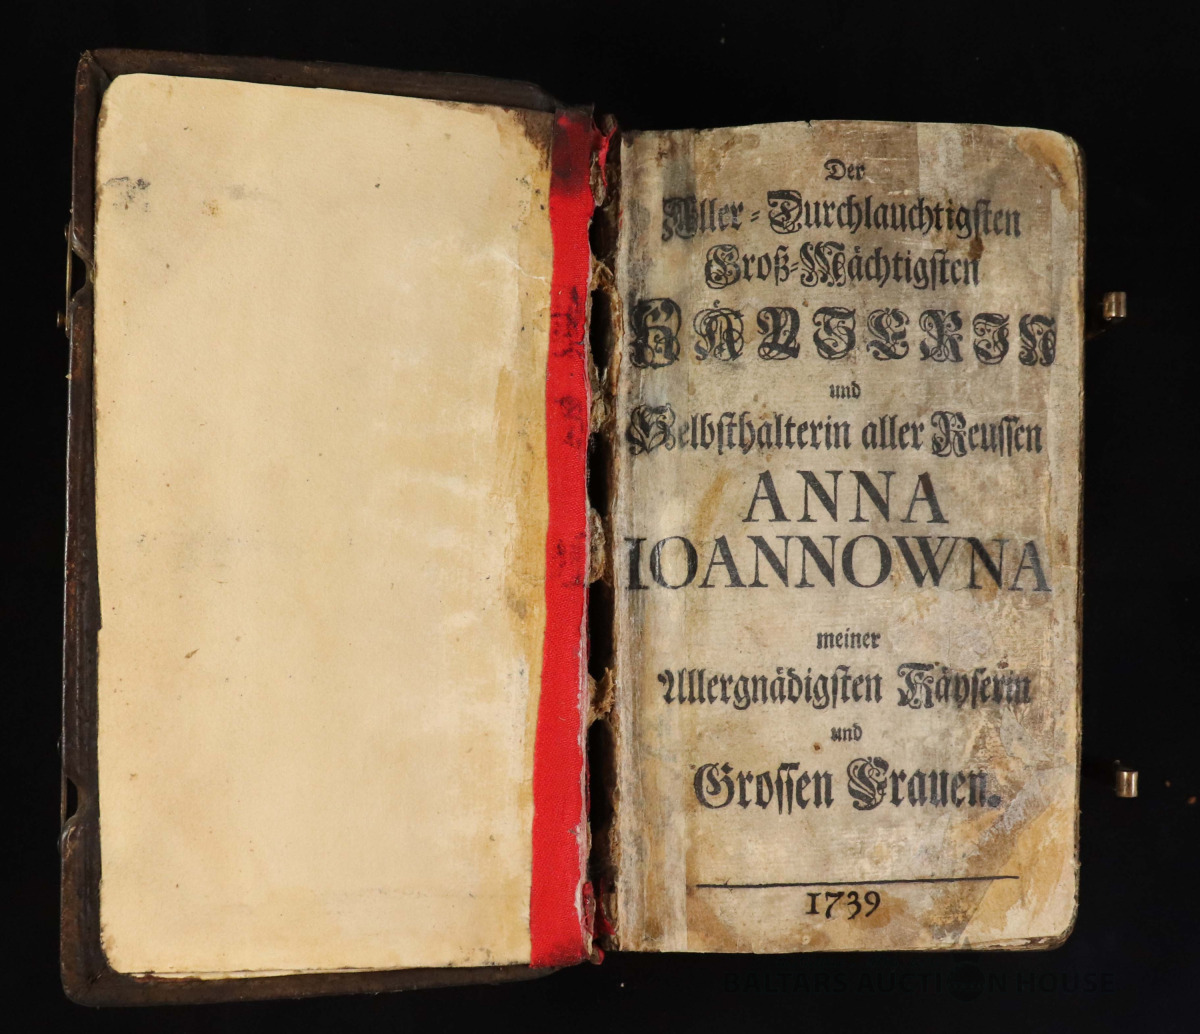 Der
Aller-Durchlauchtigsten
Groß-Mächtigsten
KÄYSERIN
und
Selbsthalterin aller Reussen
ANNA
IOANNOWNA
meiner
Allergnädigsten Käyserin
und
Grossen Frauen.
1739
BALTARS AUCTION HOUSE